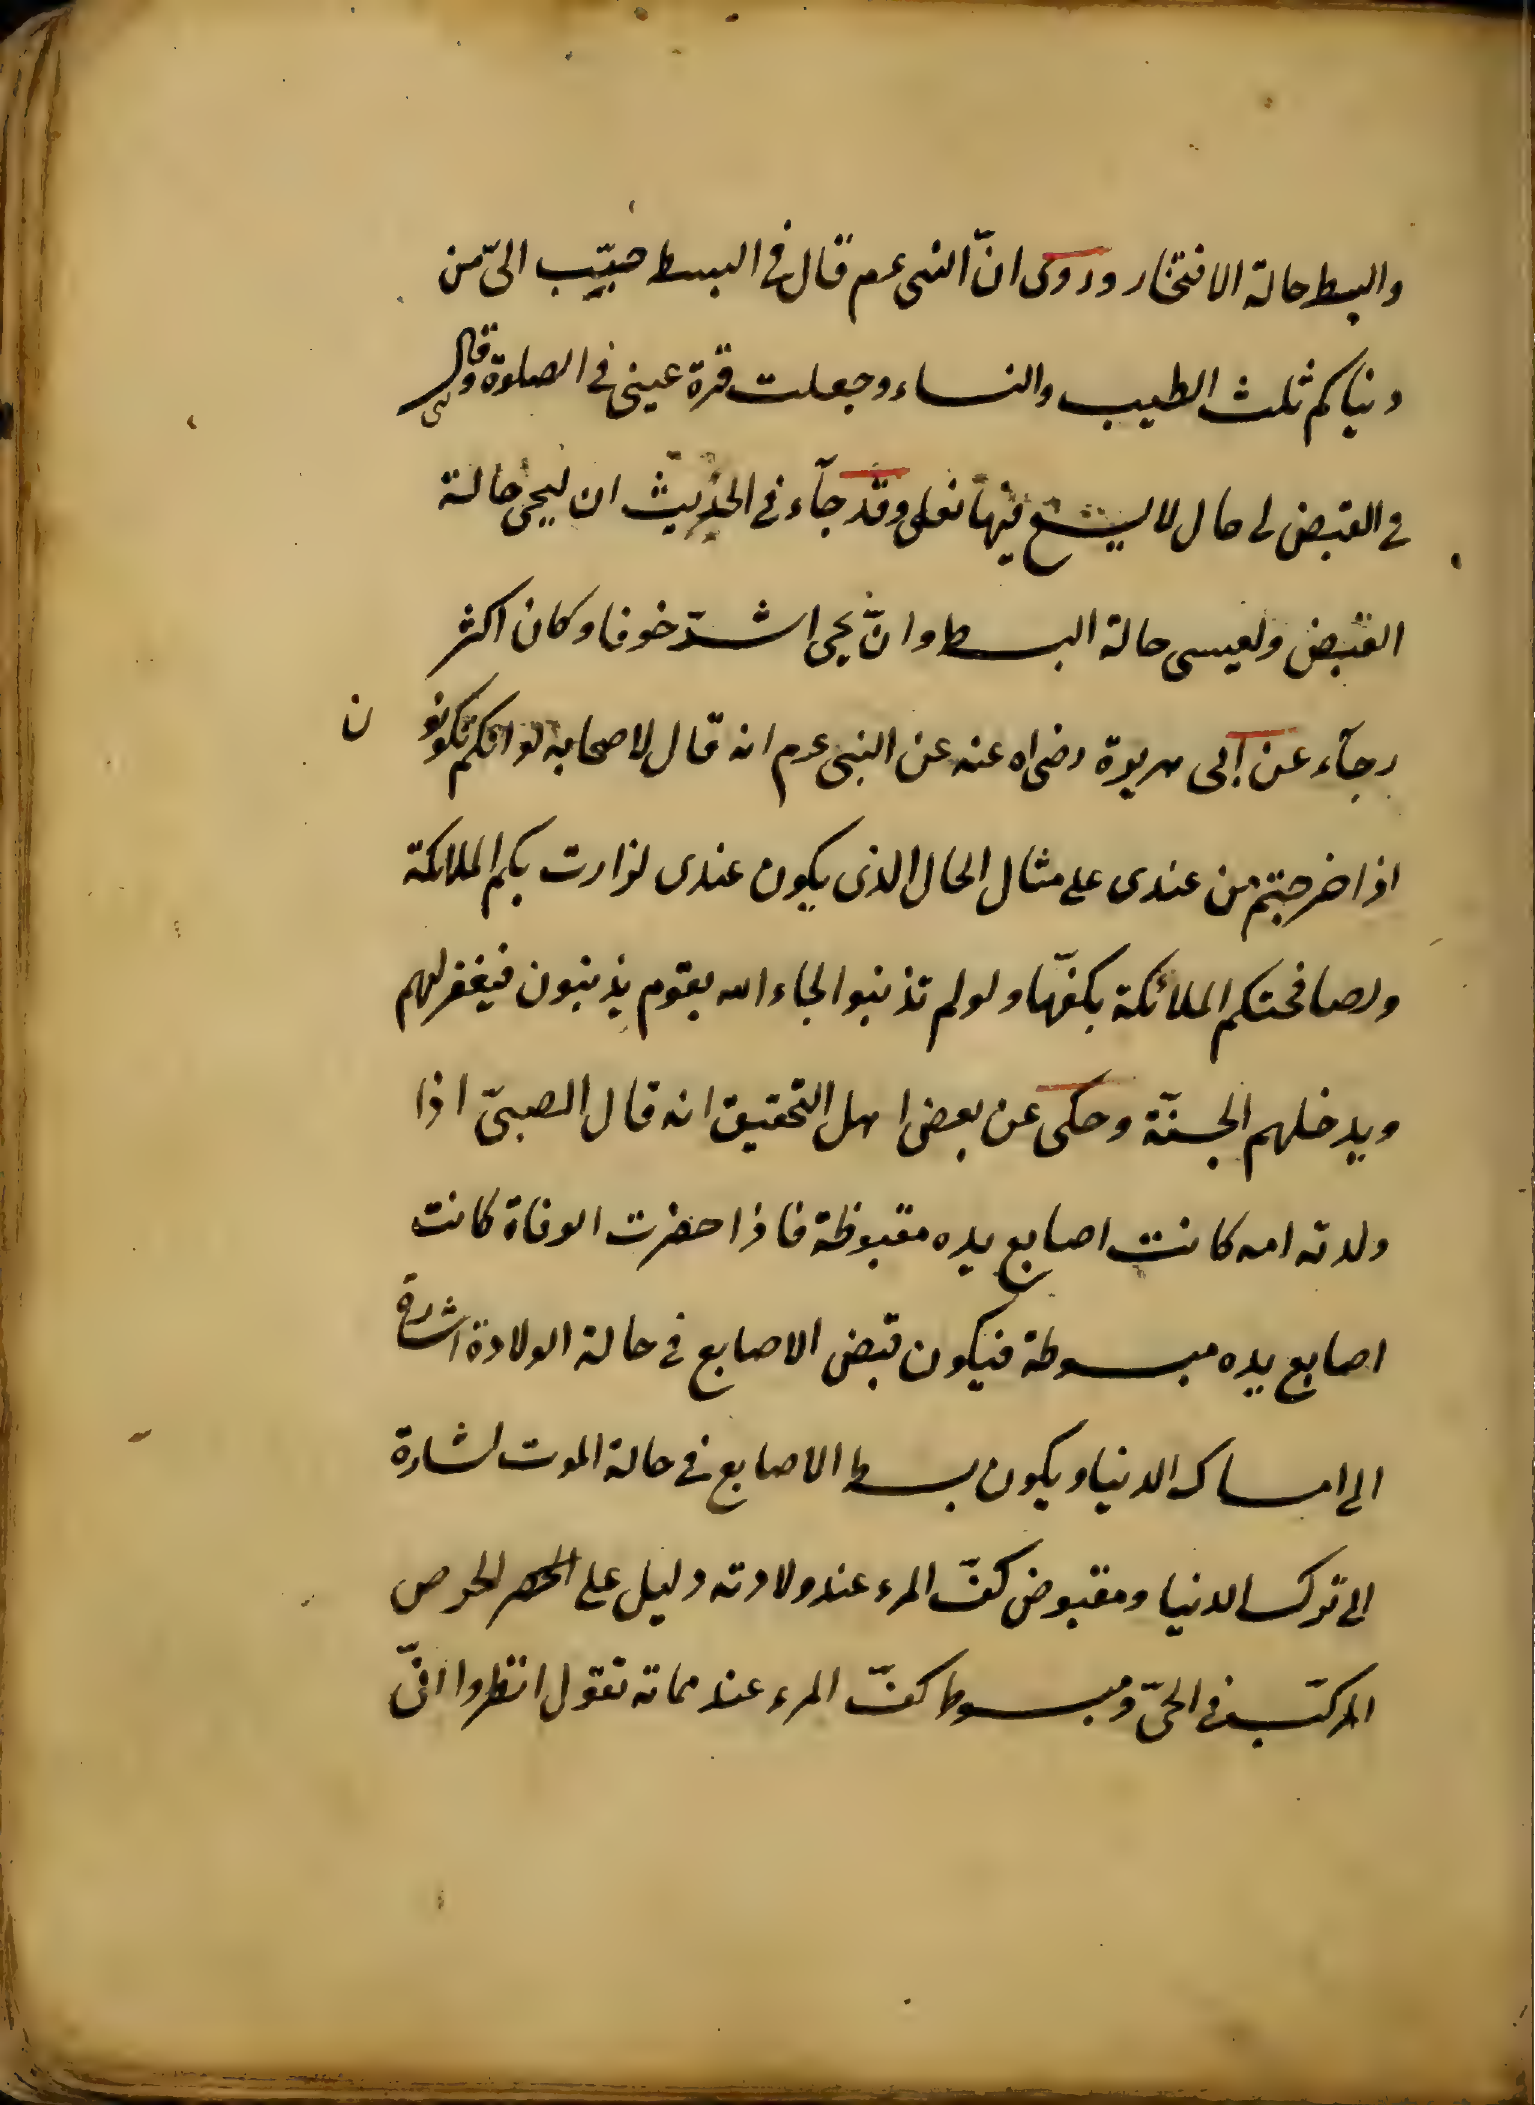 والبسط حالة الافتخار وروى انّ النبى عم قال فى البسط حبّب الىّ من
دنياكم ثلث الطيب والنساء وجعلت قرة عينى فى الصلوة وقال
فى القبض لى حال لا يسع فيها نعلى وقد جآء فى الحديث ان ليحيى حالة
القبض ولعيسى حالة البسط وانّ يحيى اشدّ خوفا وكان اكثر
رجآء عن ابى هريرة رضى اه عنه عن النبى عم انه قال لاصحابه لو انكم تكونو ن
اذا خرجتم من عندى على مثال الحال الذى يكون عندى لزارت بكم الملائكة
ولصافحتكم الملائكة بكفّها ولو لم تذنبوا لجاء الله بقوم يذنبون فيغفر لهم
ويدخلهم الجنّة وحكى عن بعض اهل التحقيق انه قال الصبىّ اذا
ولدته امه كانت اصابع يده مقبوظة فاذا حضرت الوفاة كانت
اصابع يده مبسوطة فيكون قبض الاصابع فى حالة الولادة اشارة
الى امساك الدنيا ويكون بسط الاصابع فى حالة الموت اشارة
الى ترك الدنيا ومقبوض كفّ المرء عند ولادته دليل على الحرص
المركّب فى الحىّ ومبسوط كفّ المرء عند مماته تقول انظروا انّى